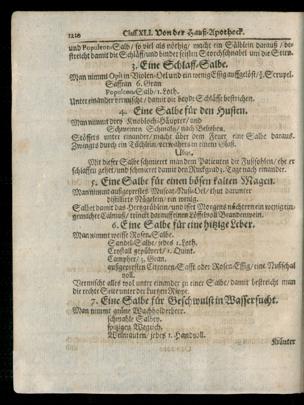 1220 Class XLI. Von der Hauß-Apotheck.
und Populeon-Salb/ so viel als nöthig/ macht ein Sälblein darauß/ be-
streicht damit die Schläff/ und bindet selbige Storchschnabel um die Stirn.
3. Eine Schlaff-Salbe.
Man nimmt Opii in Violen-Oel und ein wenig Essig auffgelöst/ ʒ. Scrupel.
Saffran 6. Gran
Populeon-Salb/ 1. Loth.
Unter einander vermischt/ damit die beyde Schläffe bestrichen.
4. Eine Salbe für den Husten.
Man nimmt drey Knobloch-Häupter/ und
Schweinen Schmaltz/ nach Belieben.
Stössers unter einander/ macht über dem Feuer eine Salbe darauß.
Zwingts durch ein Tüchlein/ verwahrts in einem Glaß.
Usus.
Mit dieser Salbe schmieret man dem Patienten die Fußsohlen/ ehe er
schlaffen gehet/ und schmieret damit den Ruckgrad 3. Tage nach einander.
5. Eine Salbe für einen bösen kalten Magen.
Man nimmt außgepreßtes Muscat-Nuß-Oel/ thut darunter
distillirte Nägelein/ ein wenig.
Salbet damit das Hertzgrüblein/ und isset Morgens nüchtern ein wenig ein-
gemachter Calmuß/ trinckt darauff einen Löffel voll Brandenwein.
6. Eine Salbe für eine hitzige Leber.
Man nimmt weisse Rosen-Salbe.
Sandel-Salbe/ jedes 1. Loth.
Crystall gepülvert/ 1. Quint.
Campher/ 3. Gran.
außgepreßten Citronen-Safft oder Rosen-Essig/ eine Nußschal
voll.
Vermischt alles wol unter einander zu einer Salbe/ damit bestreicht man
die rechte Seite unter der kurtzen Riepe.
7. Eine Salbe für Geschwulst in Wassersucht.
Man nimmt grüne Wachholderbeer.
schmahle Salbey.
spitzigen Wegrich.
Weinrauten/ jedes 1. Handvoll.
Kräuter